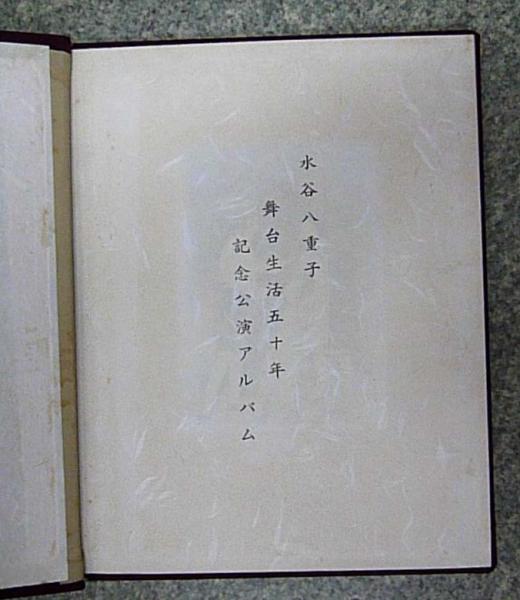 水谷八重子
舞台生活五十年
記念公演アルバム